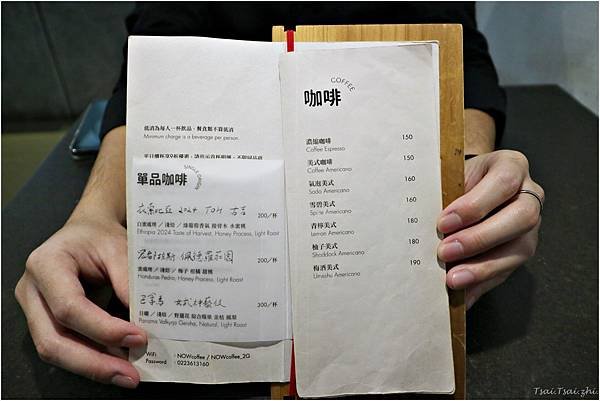 低消為每人一杯飲品，餐食類不算低消
Minimum charge is a beverage per person.
SINGLE ORIGIN
單品咖啡
衣索比亞 2024 TOH 古吉
200/杯
白蜜處理 / 淺焙 /
Ethiopia 2024 Taste of Harvest, Honey Process, Light Roast
宏都拉斯 佩德羅莊園
200/杯
蜜處理 / 淺焙 / 梅子 柑橘 甜桃
Honduras Pedro, Honey Process, Light Roast
巴拿馬 女武神藝伎
300/杯
日曬 / 淺焙 / 野薑花 綜合莓果 金桔 楓糖
Panama Valkyrja Geisha, Natural, Light Roast
WiFi : NOWcoffee / NOWcoffee_2G
Password : 0223613160
COFFEE
咖啡
濃縮咖啡 150
Coffee Espresso
美式咖啡 150
Coffee Americano
氣泡美式 160
Soda Americano
雪碧美式 160
Sprite Americano
青檸美式 180
Lemon Americano
柚子美式 180
Shaddock Americano
梅酒美式 190
Umeshu Americano
Tsai.Tsai.zhi.